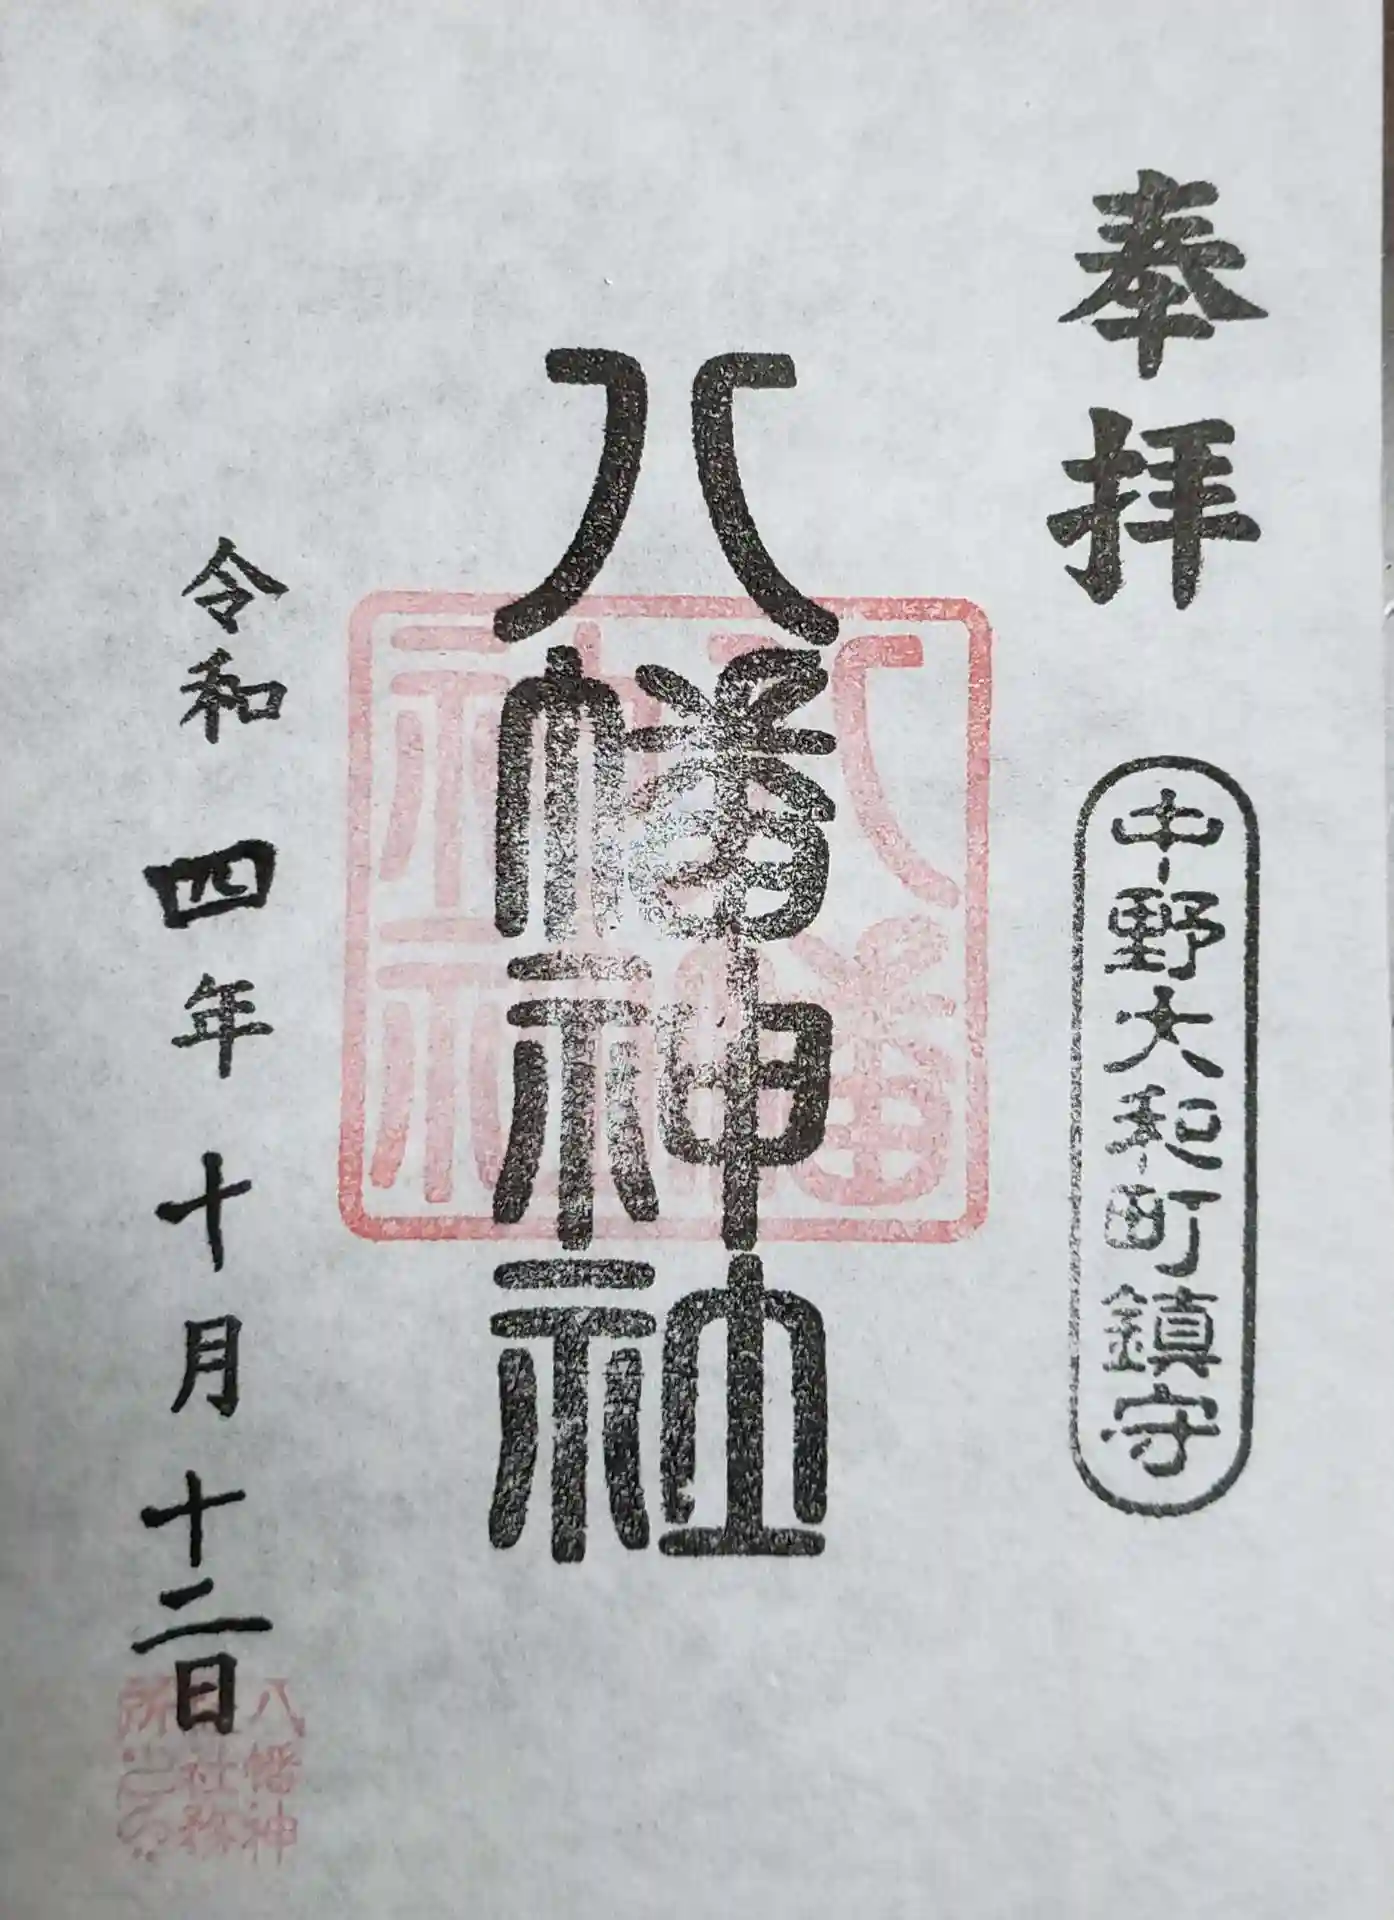 奉拝
中野大和町鎮守
八幡神社
八幡
神社
令和四年十月十二日
八幡神
社務
所